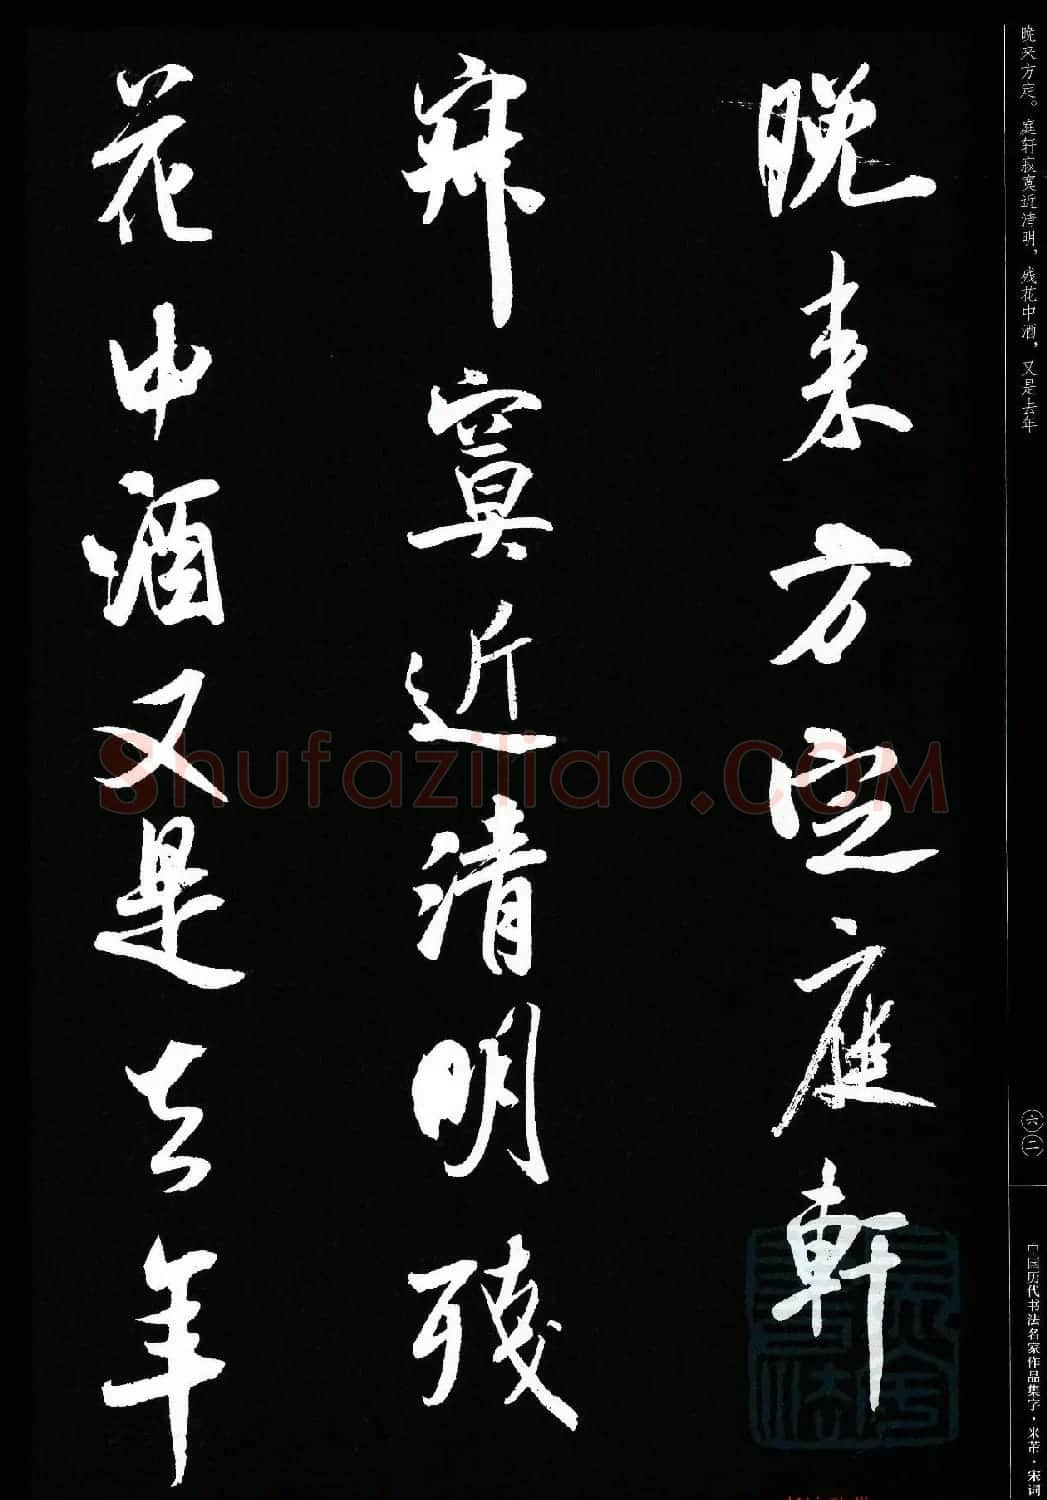 晚来方定。庭轩寂寞近清明，残花中酒，又是去年
晚来方定庭軒
寂寞近清明残
花中酒又是去年
六二
中国历代书法名家作品集字·米芾·宋词
Shufaziliao.COM